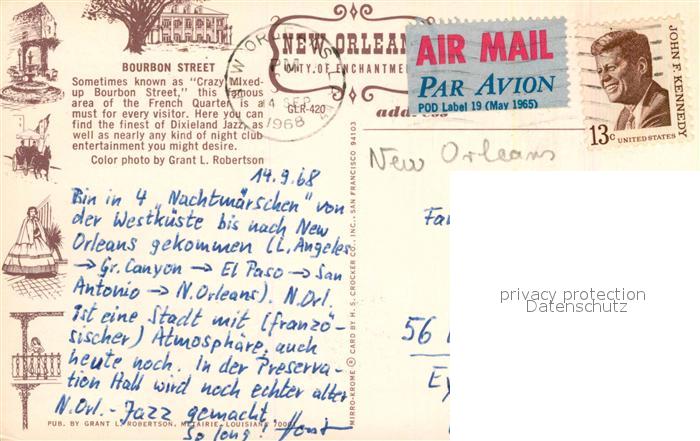 BOURBON STREET
Sometimes known as "Crazy Mixed-
up Bourbon Street," this famous
area of the French Quarter is a
must for every visitor. Here you can
find the finest of Dixieland Jazz, as
well as nearly any kind of night club
entertainment you might desire.
Color photo by Grant L. Robertson
NEW ORLEANS
CITY OF ENCHANTMENT
GLR-420
NEW ORLEANS
PM
14 SEP
1968
AIR MAIL
PAR AVION
POD Label 19 (May 1965)
address
JOHN F. KENNEDY
13c UNITED STATES
New Orleans
14.9.68
Bin in 4 „Nachtmärschen" von
der Westküste bis nach New
Orleans gekommen (L. Angeles
→ Gr. Canyon → El Paso → San
Antonio → N. Orleans). N. Orl.
ist eine Stadt mit (franzö-
sischer) Atmosphäre, auch
heute noch. In der Preserva-
tion Hall wird noch echter alter
N. Orl. - Jazz gemacht
So long! Horst
Fa
56
Ey
privacy protection
Datenschutz
MIRRO-KROME ® CARD BY H. S. CROCKER CO., INC., SAN FRANCISCO, CA. 94103
PUB. BY GRANT L. ROBERTSON, METAIRIE, LOUISIANA 700